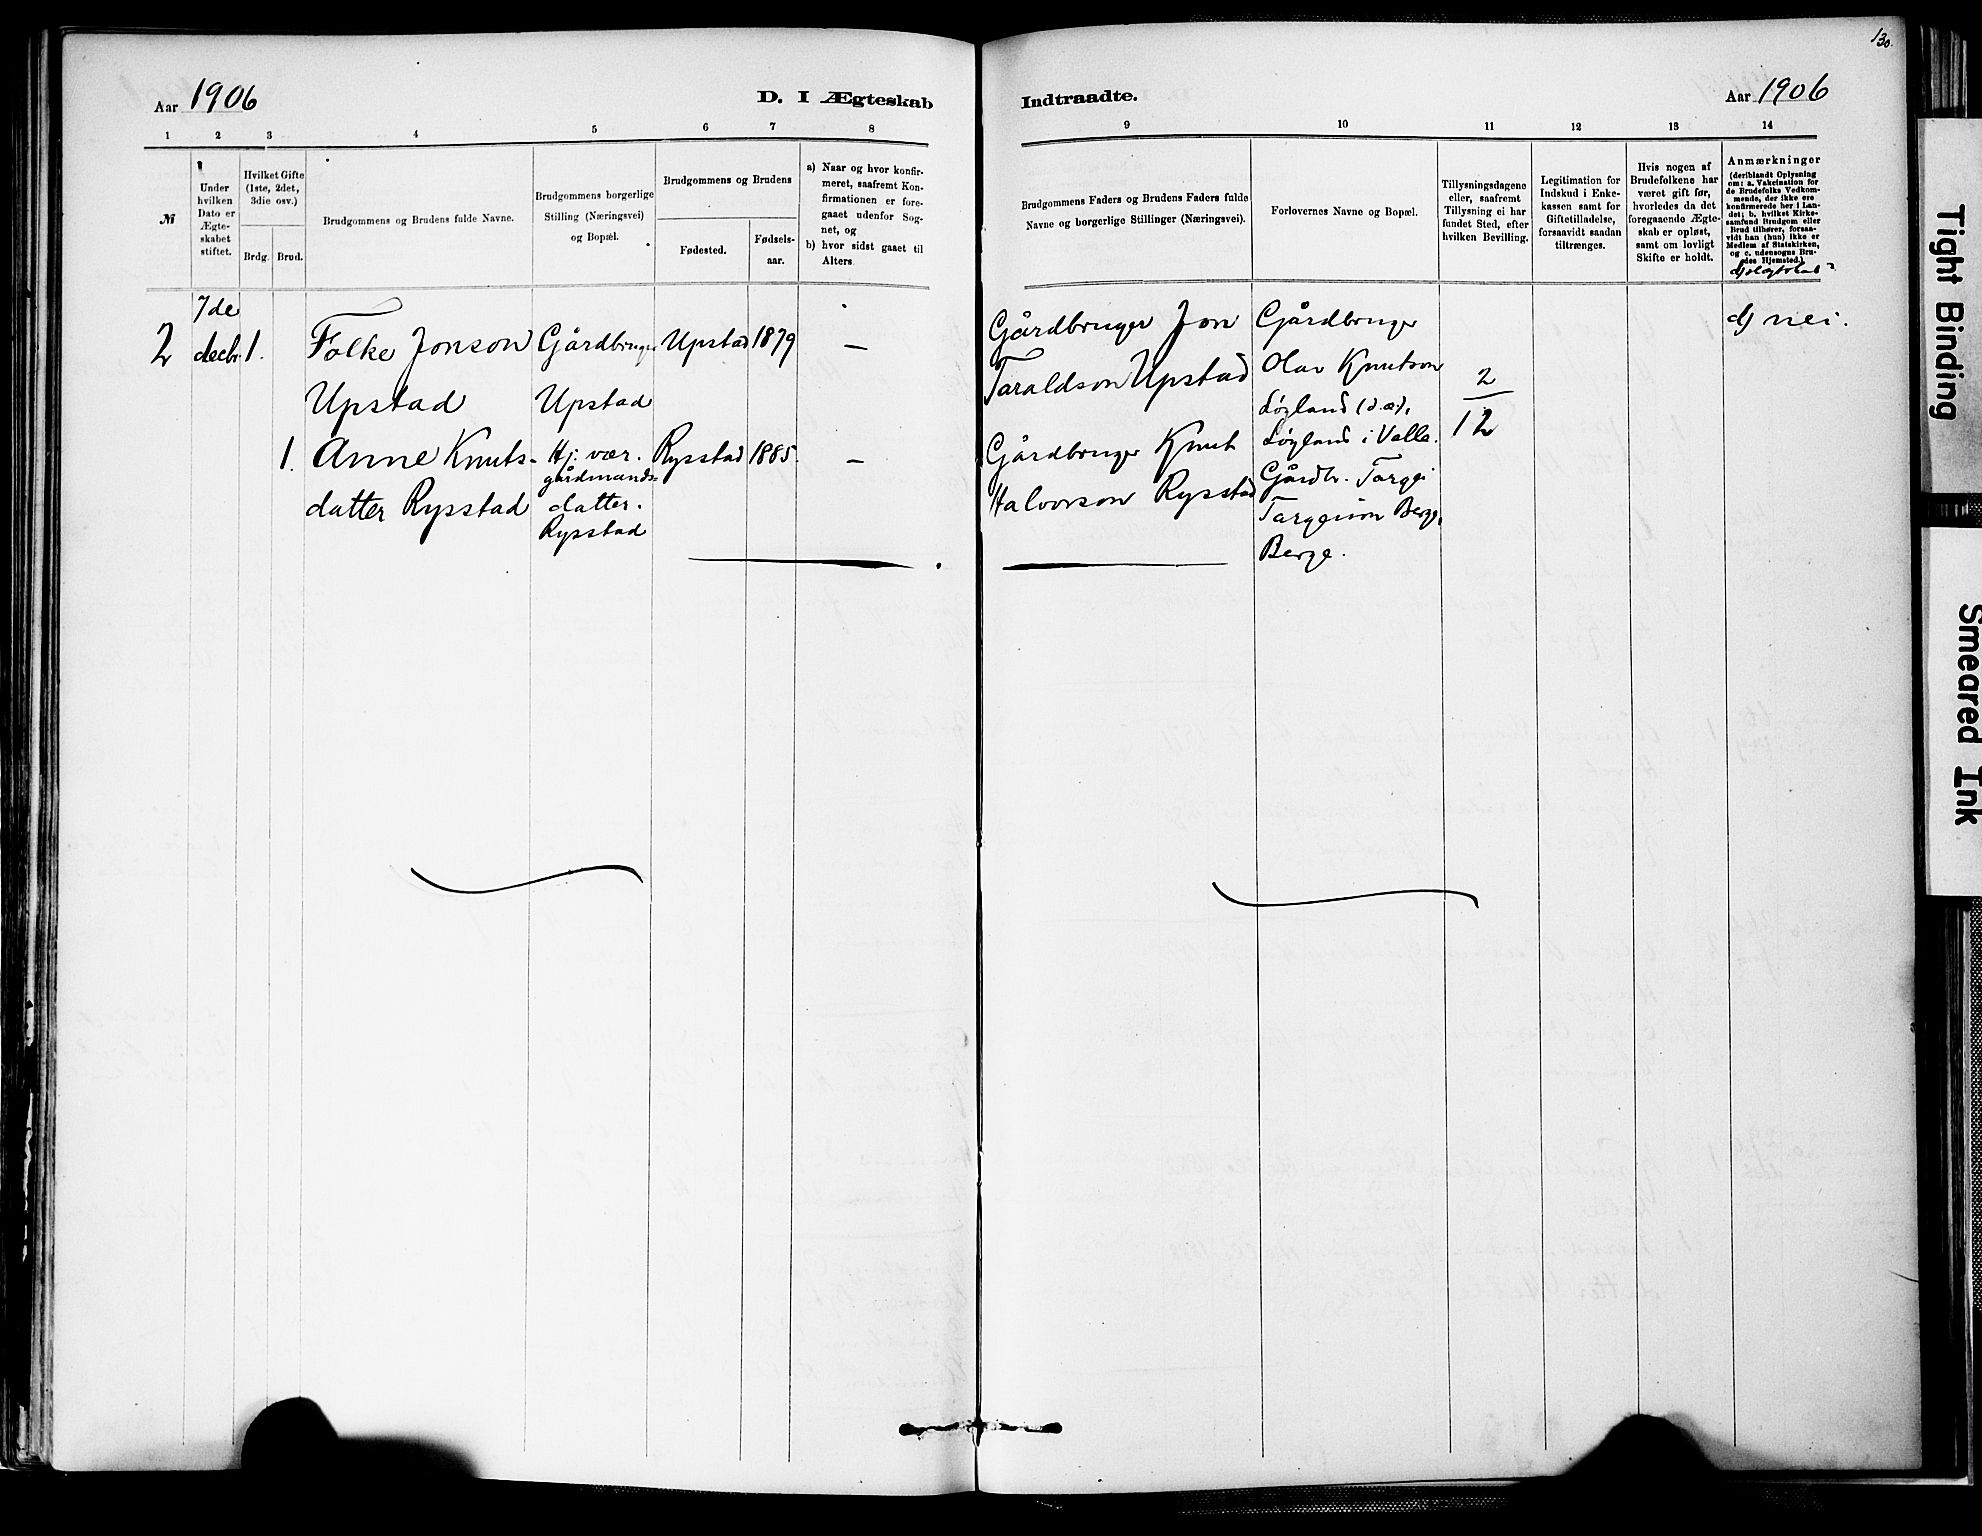 130.
Aar 1906
D. I Ægteskab
Indtraadte.
Aar 1906
1 2 3 4 5 6 7 8
9 10 11 12 13 14
№
Under
hvilken
Dato er
Ægte-
skabet
stiftet.
Hvilket Gifte
(1ste, 2det,
3die osv.)
Brdg. Brud.
Brudgommens og Brudens fulde Navne.
Brudgommens borgerlige
Stilling (Næringsvei)
og Bopæl.
Brudgommens og Brudens
Fødested.
Fødsels-
aar.
a) Naar og hvor konfir-
meret, saafremt Kon-
firmationen er fore-
gaaet udenfor Sog-
net, og
b) hvor sidst gaaet til
Alters.
Brudgommens Faders og Brudens Faders fulde
Navne og borgerlige Stillinger (Næringsvei).
Forlovernes Navne og Bopæl.
Tillysningsdagene
eller, saafremt
Tillysning ei har
fundet Sted, efter
hvilken Bevilling.
Legitimation for
Indskud i Enke-
kassen samt for
Giftetilladelse,
forsaavidt saadan
tiltrænges.
Hvis nogen af
Brudefolkene har
været gift før,
hvorledes da det
foregaaende Ægte-
skab er opløst,
samt om lovligt
Skifte er holdt.
Anmærkninger
(deriblandt Oplysning
om: a. Vakcination for
de Brudefolks Vedkom-
mende, der ikke ere
konfirmerede her i Lan-
det; b. hvilket Kirke-
samfund Brudgom eller
Brud tilhører, forsaa-
vidt han (hun) ikke er
Medlem af Statskirken,
og c. udensogns Bru-
des Hjemsted.)
2
7de
decbr.
1.
Folke Jonson
Upstad
Gårdbruger
Upstad
Upstad
1879
—
Gårdbruger Jon
Taraldson Upstad
Gårdbruger
Olav Knutson
Løyland (d.æ),
Løyland i Valle.
2
12
d) nei.
1.
Anne Knuts-
datter Rysstad
Hj. vær.
gårdmands-
datter.
Rysstad
Rysstad
1885
—
Gårdbruger Knut
Halvorson Rysstad
Gårdbr. Targei
Targeison Berge,
Berge.
Tight Binding
Smeared Ink